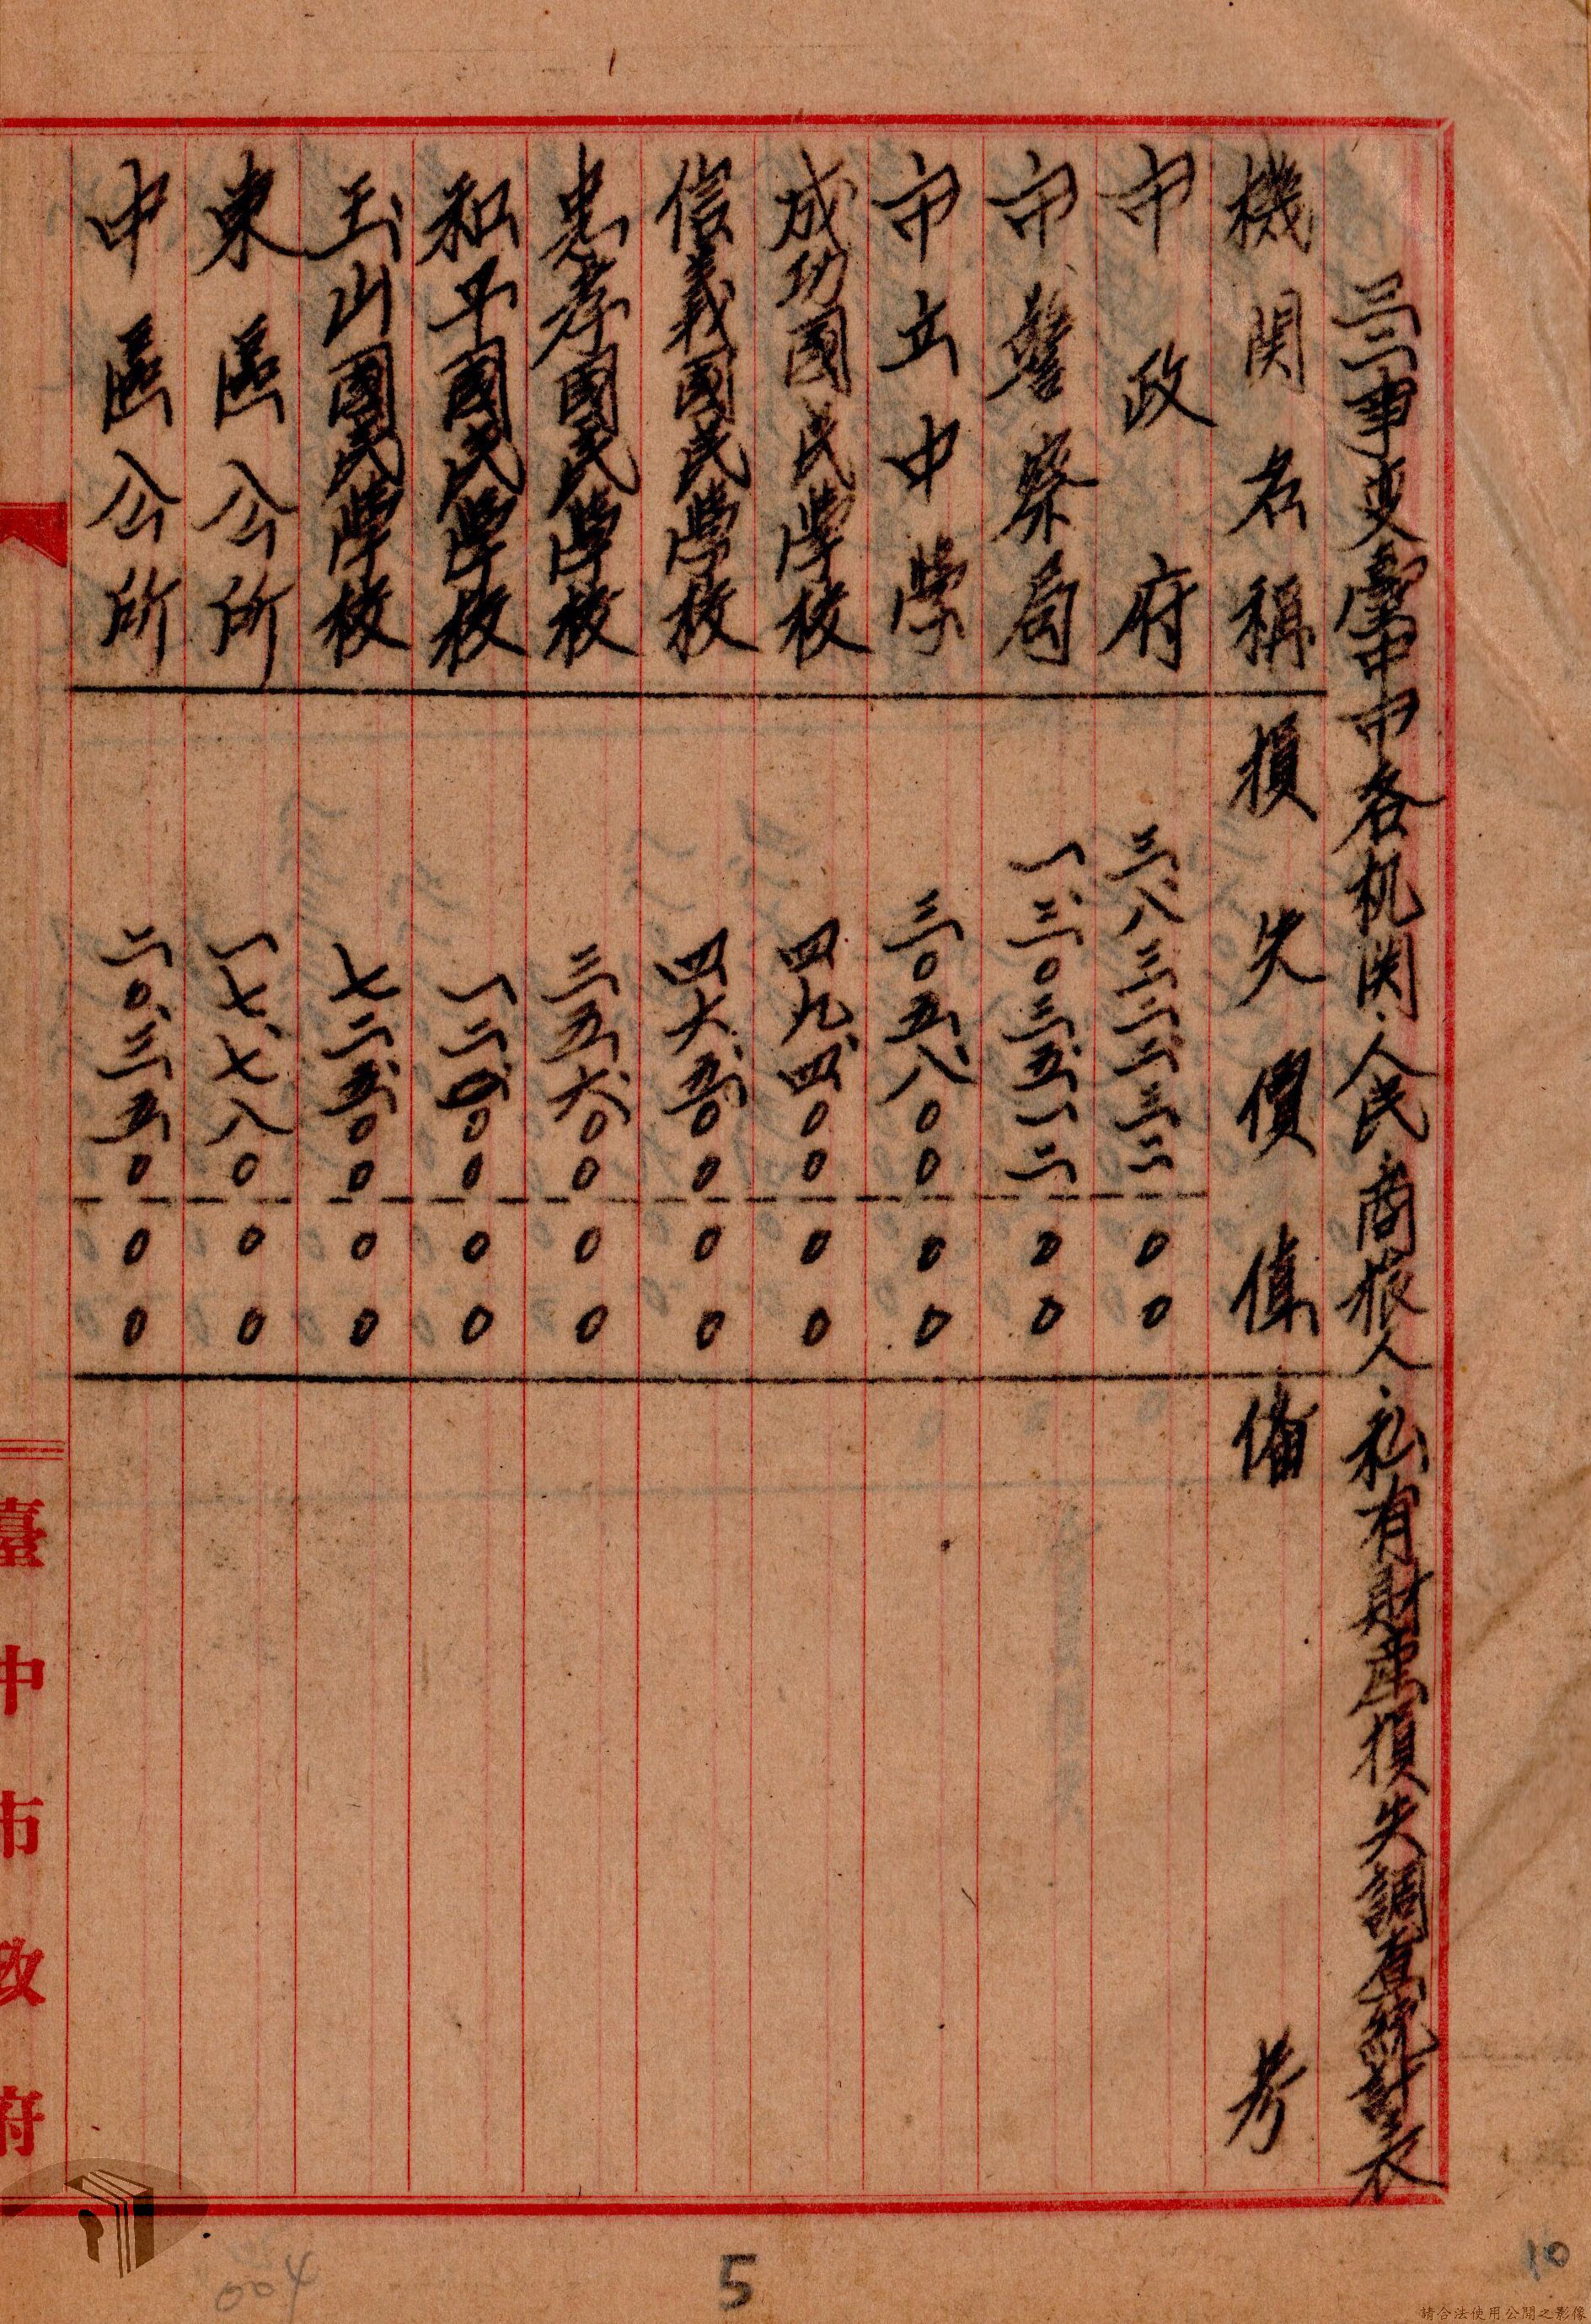 三二事変臺中市各机関、人民、商旅人、私有財產損失調查統計表
機関名稱 損失價值 備考
市政府 三、八三二、三三二 〇〇
市警察局 一、三〇三、五一二 〇〇
市立中學 三〇五、八〇〇 〇〇
成功國民學校 四九、四〇〇 〇〇
信義國民學校 四六、五〇〇 〇〇
忠孝國民學校 三五、六〇〇 〇〇
和平國民學校 一二、〇〇 〇〇
玉山國民學校 七二、五〇〇 〇〇
東區公所 一七、七八〇 〇〇
中區公所 二〇、三五〇 〇〇
臺中市政府
004
5
10
請合法使用公開之影像